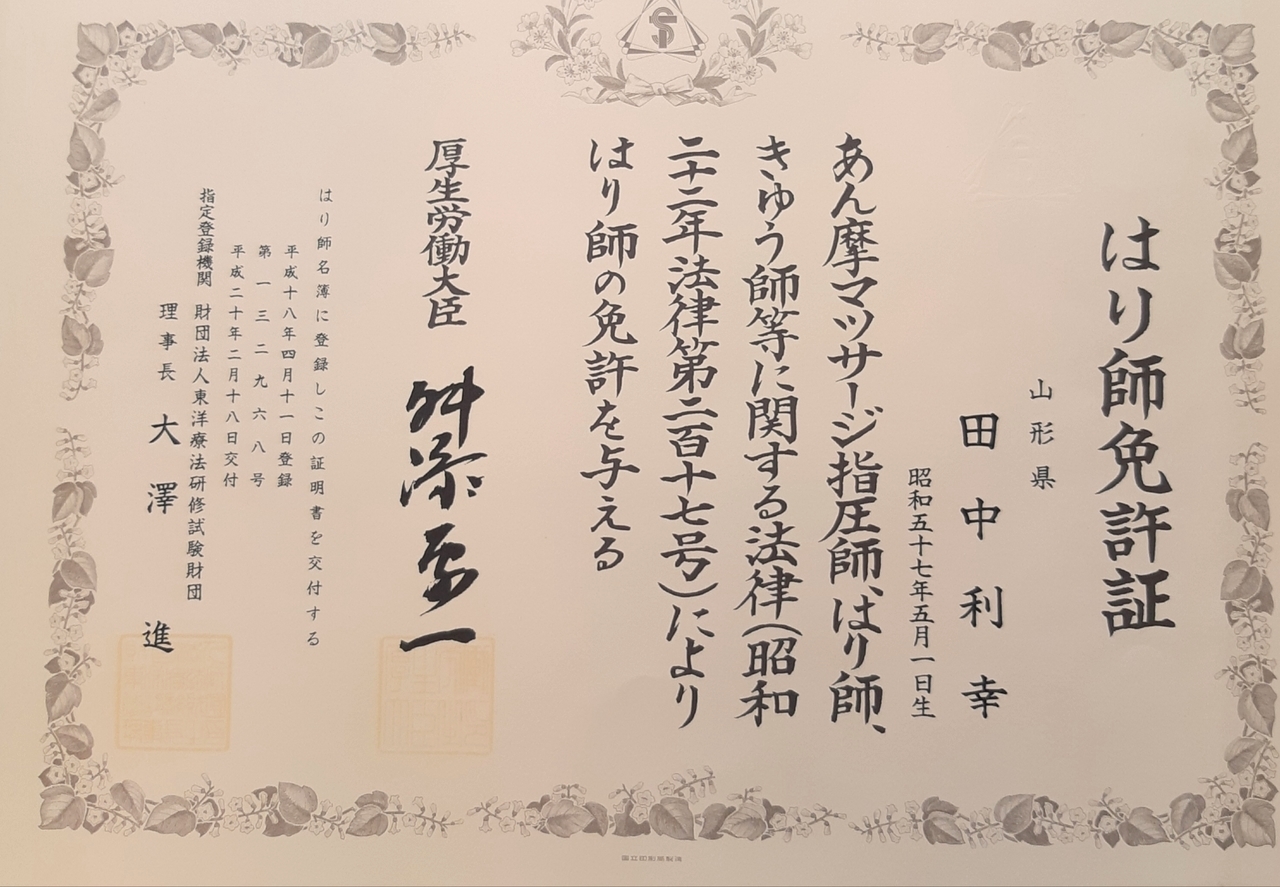 はり師免許証
山形県
田中利幸
昭和五十七年五月一日生
あん摩マツサージ指圧師、はり師、
きゆう師等に関する法律(昭和
二十二年法律第二百十七号)により
はり師の免許を与える
厚生労働大臣 舛添要一
はり師名簿に登録しこの証明書を交付する
平成十八年四月十一日登録
第一三二九六八号
平成二十年二月十八日交付
指定登録機関 財団法人東洋療法研修試験財団
理事長 大澤進
国立印刷局製造